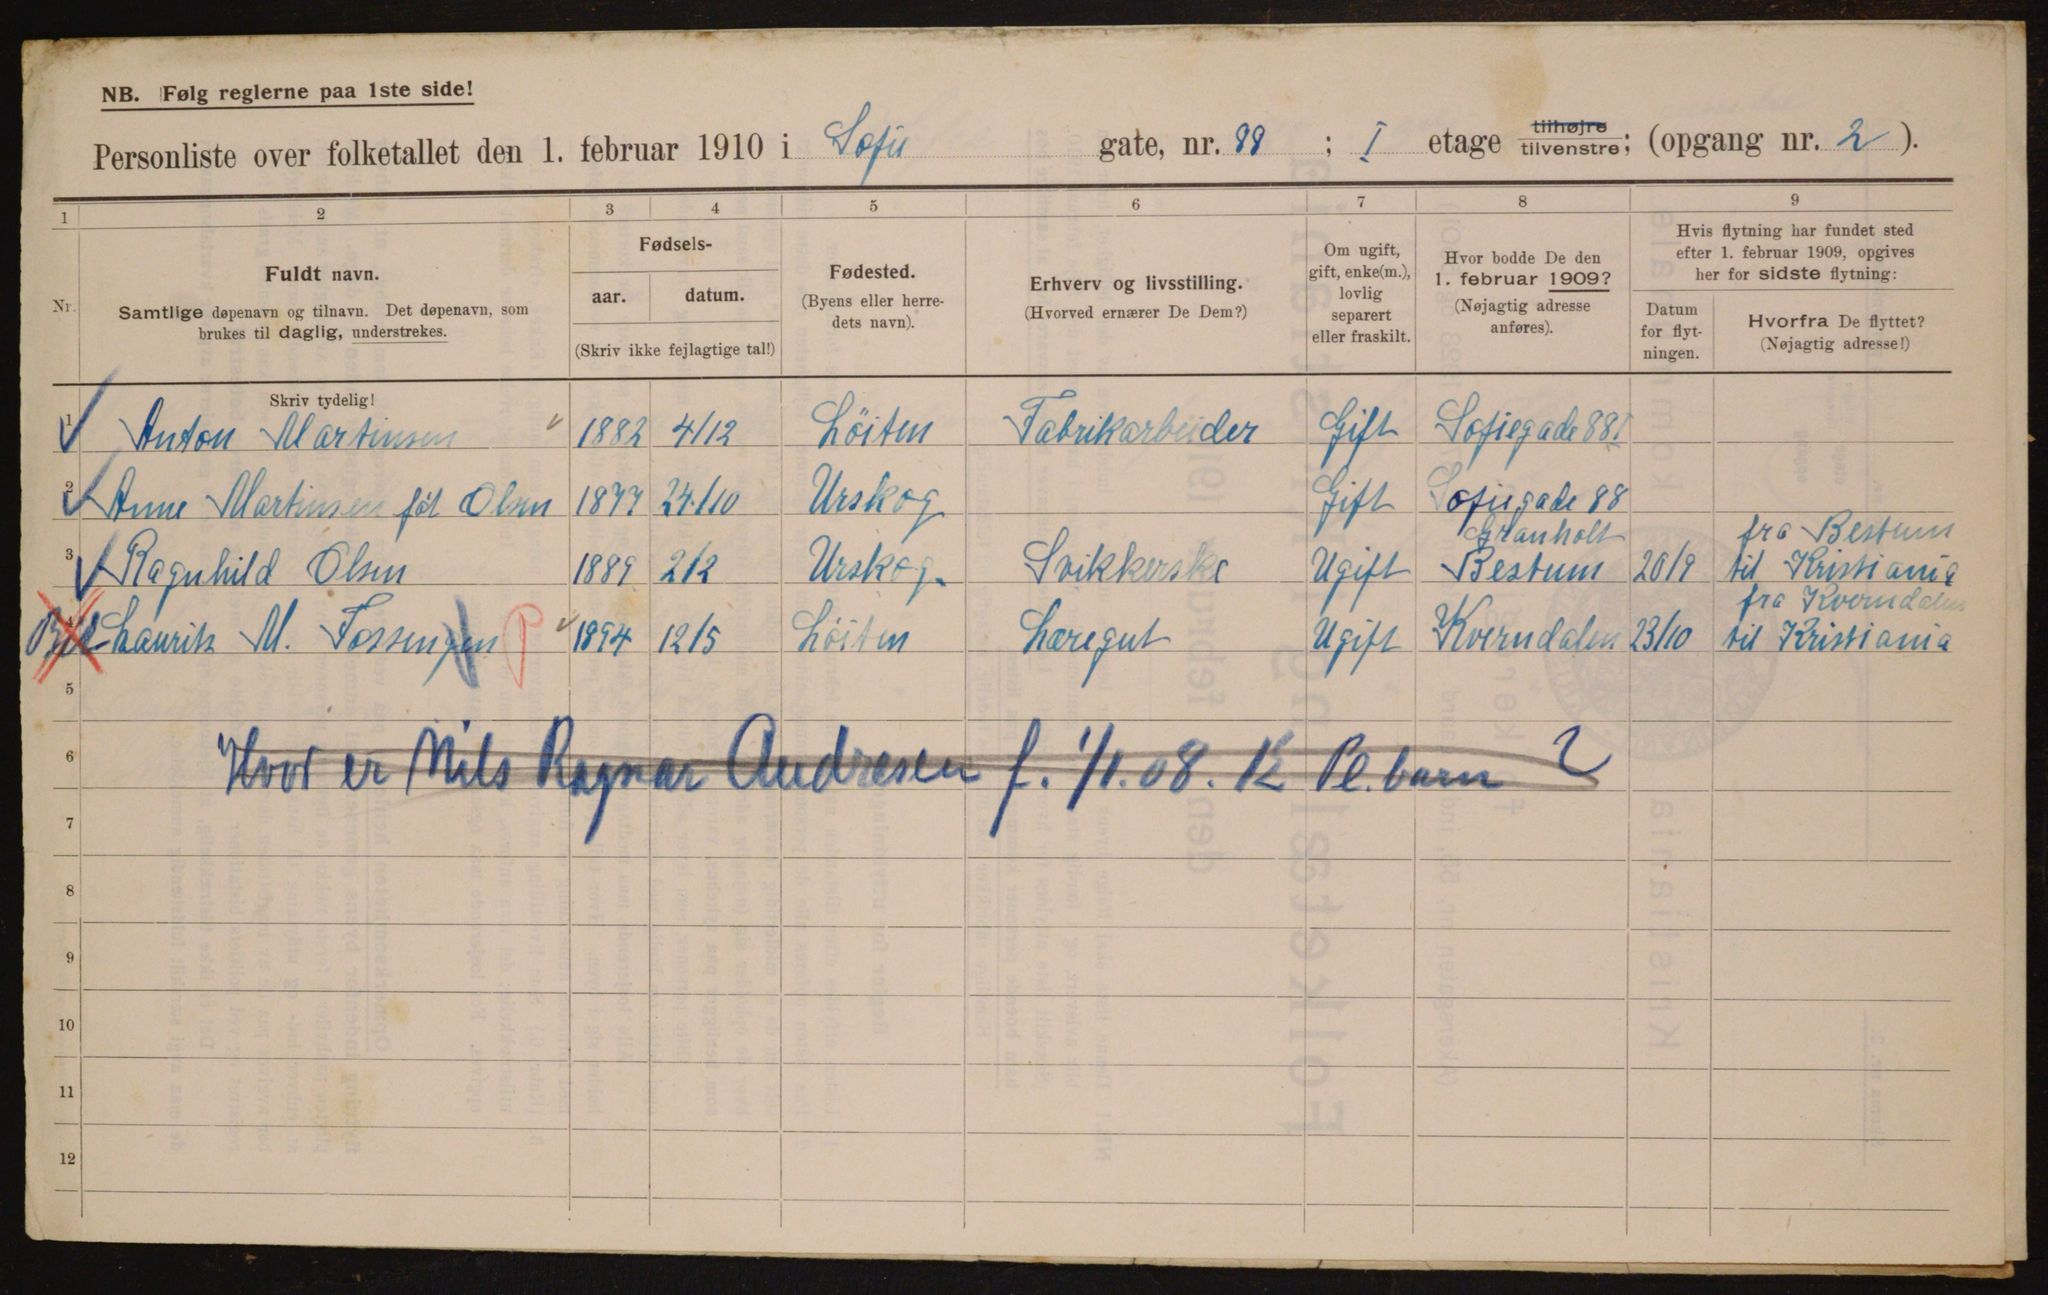 NB. Følg reglerne paa 1ste side!
Personliste over folketallet den 1. februar 1910 i Sofie gate, nr. 88 ; I etage tilhøjre tilvenstre; (opgang nr. 2 ).
1 2 3 4 5 6 7 8 9
Nr.
Fuldt navn.
Samtlige døpenavn og tilnavn. Det døpenavn, som
brukes til daglig, understrekes.
Fødsels-
aar. datum.
(Skriv ikke fejlagtige tal!)
Fødested.
(Byens eller herre-
dets navn).
Erhverv og livsstilling.
(Hvorved ernærer De Dem?)
Om ugift,
gift, enke(m.),
lovlig
separert
eller fraskilt.
Hvor bodde De den
1. februar 1909?
(Nøjagtig adresse
anføres).
Hvis flytning har fundet sted
efter 1. februar 1909, opgives
her for sidste flytning:
Datum
for flyt-
ningen.
Hvorfra De flyttet?
(Nøjagtig adresse!)
Skriv tydelig!
1 Anton Martinsen 1882 4/12 Löiten Fabrikarbeider Gift Sofiegade 88 I
2 Anne Martinsen föt Olsen 1877 24/10 Urskog Gift Sofiegade 88
Granholt fra Bestum
3 Ragnhild Olsen 1889 2/2 Urskog. Svikkerske Ugift Bestum 20/9 til Kristiania
fra Kverndalen
4 Laurits M. Fossengen 1894 12/5 Löiten Læregut Ugift Kverndalen 23/10 til Kristiania
5
6 Hvor er Nils Ragnar Andresen f. 1/1.08. K Pl. barn ?
7
8
9
10
11
12